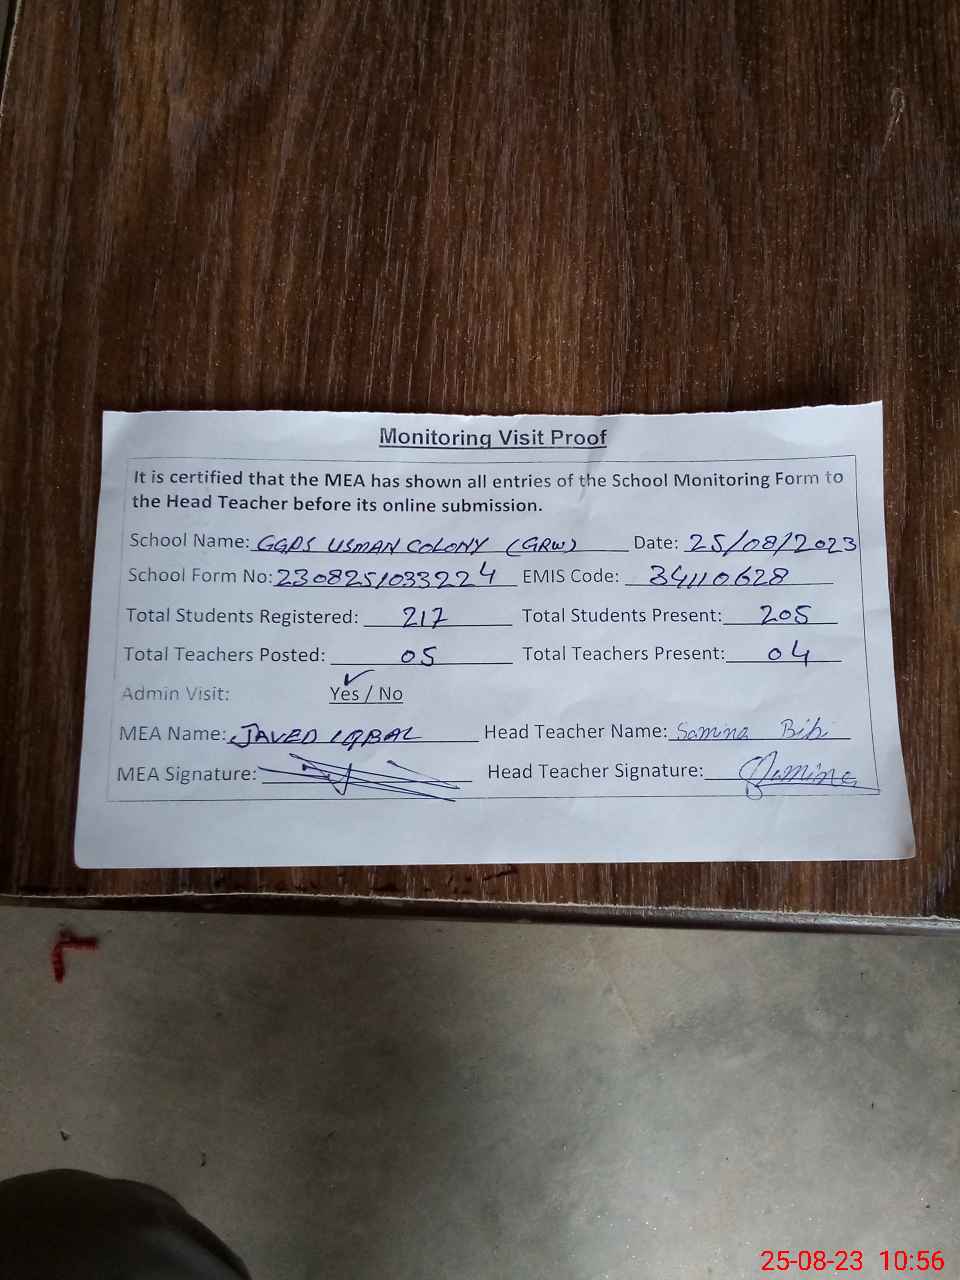 Monitoring Visit Proof
It is certified that the MEA has shown all entries of the School Monitoring Form to
the Head Teacher before its online submission.
School Name: GGPS USMAN COLONY (GRW) Date: 25/08/2023
School Form No: 2308251033224 EMIS Code: 34110628
Total Students Registered: 217 Total Students Present: 205
Total Teachers Posted: 05 Total Teachers Present: 04
Admin Visit: Yes / No
MEA Name: JAVED IQBAL Head Teacher Name: Samina Bibi
MEA Signature: Head Teacher Signature: Samina
25-08-23 10:56